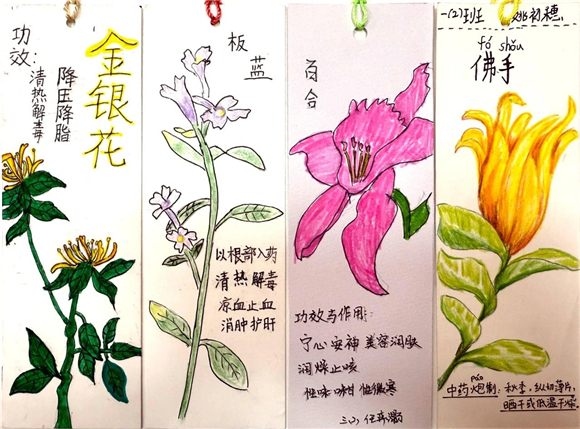 金银花
功效:
清热解毒
降压降脂
板蓝
以根部入药
清热解毒
凉血止血
消肿护肝
百合
功效与作用:
宁心安神 美容润肤
润燥止咳
性味:味甘 性微寒
一(2)班 姚初穗
fó shǒu
佛手
páo
中药炮制:秋季,纵切薄片,
晒干或低温干燥。